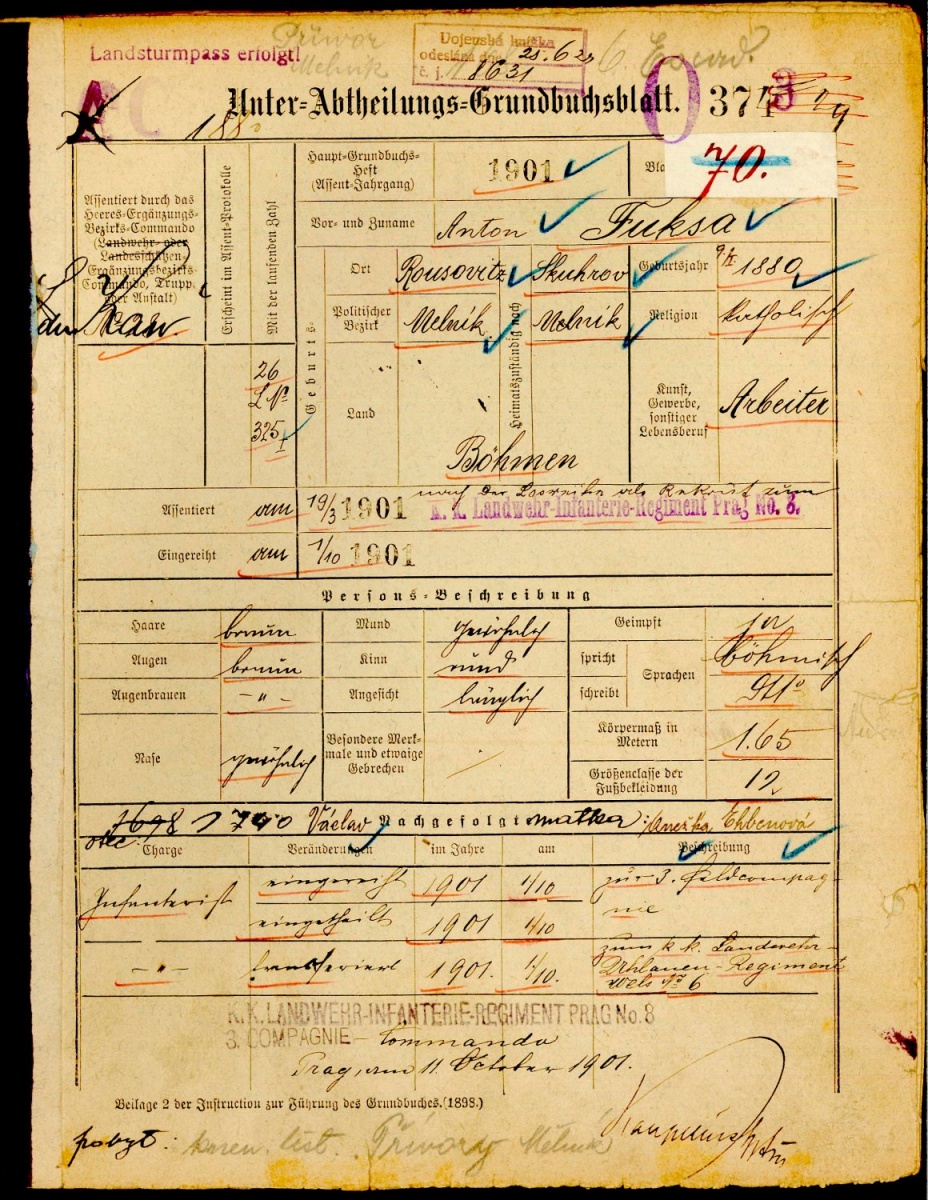 Landsturmpass erfolgt!
Přívor
Melnik
Vojenská knížka
odeslána dne 25. 6. 23
č. j. 8631
6 Escad.
Unter=Abtheilungs=Grundbuchsblatt.
374
1880
Assentiert durch das
Heeres=Ergänzungs=
Bezirks=Commando
(Landwehr= oder
Landesschützen
Ergänzungsbezirks=
Commando, Trupp.
oder Anstalt)
Erscheint im Assent=Protokolle
Mit der laufenden Zahl
26
L №
325
I
Haupt=Grundbuchs=
Heft
(Assent=Jahrgang)
1901
70.
Vor= und Zuname
Anton Fuksa
Geburts=
Ort
Rousovitz
Heimatszuständig nach
Skuhrov
Geburtsjahr
1880
Politischer
Bezirk
Melnik
Melnik
Religion
katholisch
Land
Böhmen
Kunst,
Gewerbe,
sonstiger
Lebensberuf
Arbeiter
Assentiert am 19/3 1901 nach der Losreihe als Rekrut zum
K. K. Landwehr-Infanterie-Regiment Prag No. 8.
Eingereiht am 1/10 1901
Persons=Beschreibung
Haare braun Mund gewöhnlich Geimpft ja
Augen braun Kinn rund spricht Sprachen böhmisch
Augenbrauen — " — Angesicht länglich schreibt dtto
Nase gewöhnlich
Besondere Merk=
male und etwaige
Gebrechen
Körpermaß in
Metern
1.65
Größenclasse der
Fußbekleidung
12
otec: Václav Nachgefolgt matka: Anežka
Charge Veränderungen im Jahre am Beschreibung
Infanterist eingereiht 1901 1/10 zur 3. Feldcompag=
nie
eingetheilt 1901 1/10
— " — transferiert 1901. 1/10. zum k. k. Landwehr=
Uhlanen=Regiment
Wels № 6
K. K. LANDWEHR-INFANTERIE-REGIMENT PRAG No. 8
3. COMPAGNIE – Commando
Prag, am 11. October 1901.
Beilage 2 der Instruction zur Führung des Grundbuches. (1898.)
pobyt: Přívory Melník